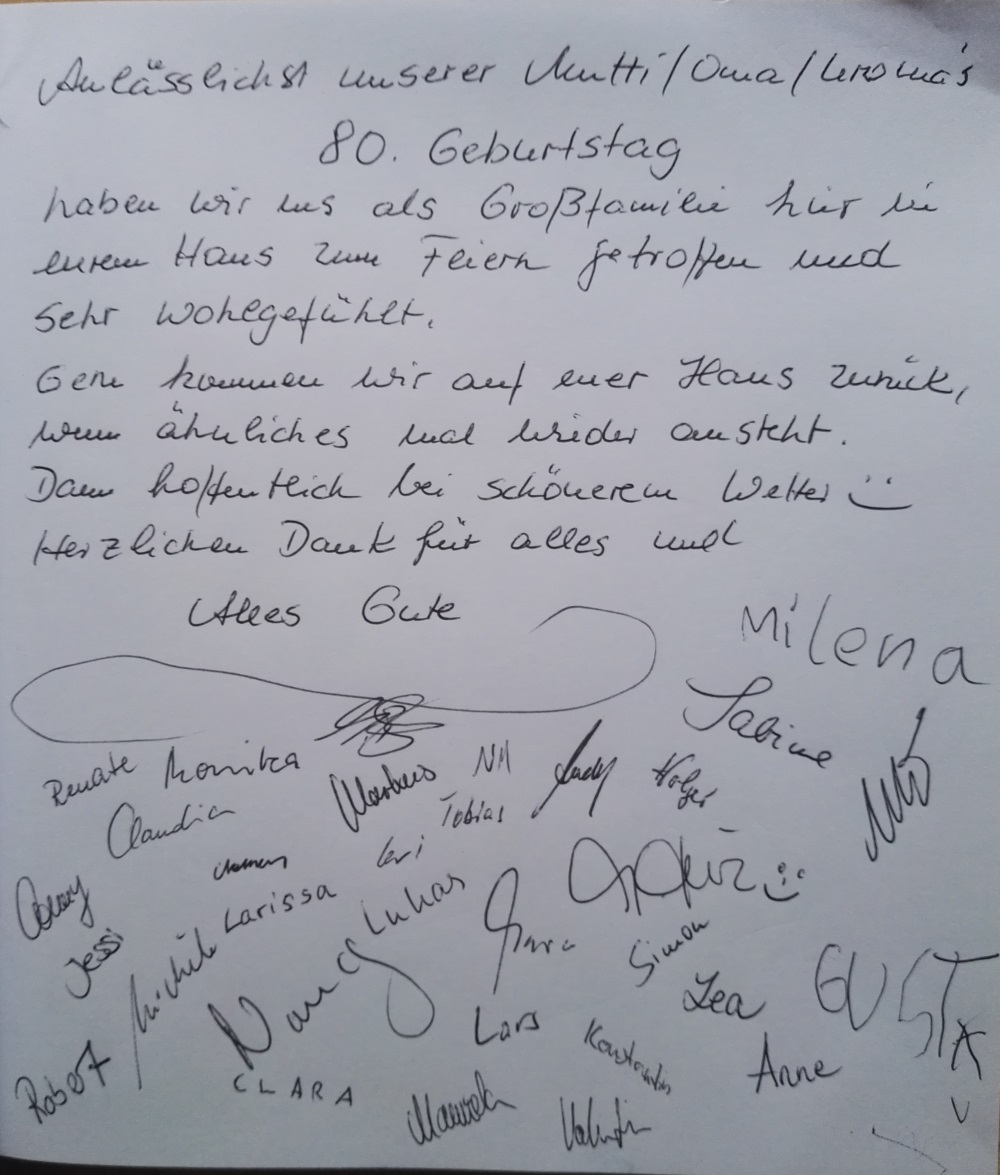 Anlässlichst unserer Mutti/Oma/Uroma's
80. Geburtstag
haben wir uns als Großfamilie hier in
eurem Haus zum Feiern getroffen und
sehr wohlgefühlt.
Gern kommen wir auf euer Haus zurück,
wenn ähnliches mal wieder ansteht.
Dann hoffentlich bei schönerem Wetter
Herzlichen Dank für alles und
Alles Gute
Milena
Sabine
Renate Monika
Markus Nil Holger
Claudia
Tobias
Conny
Larissa Lukas
Jessi
Simon
Nancy
Lea GUSTAV
Lars Konstantin
Robert
CLARA
Anne
Valentin